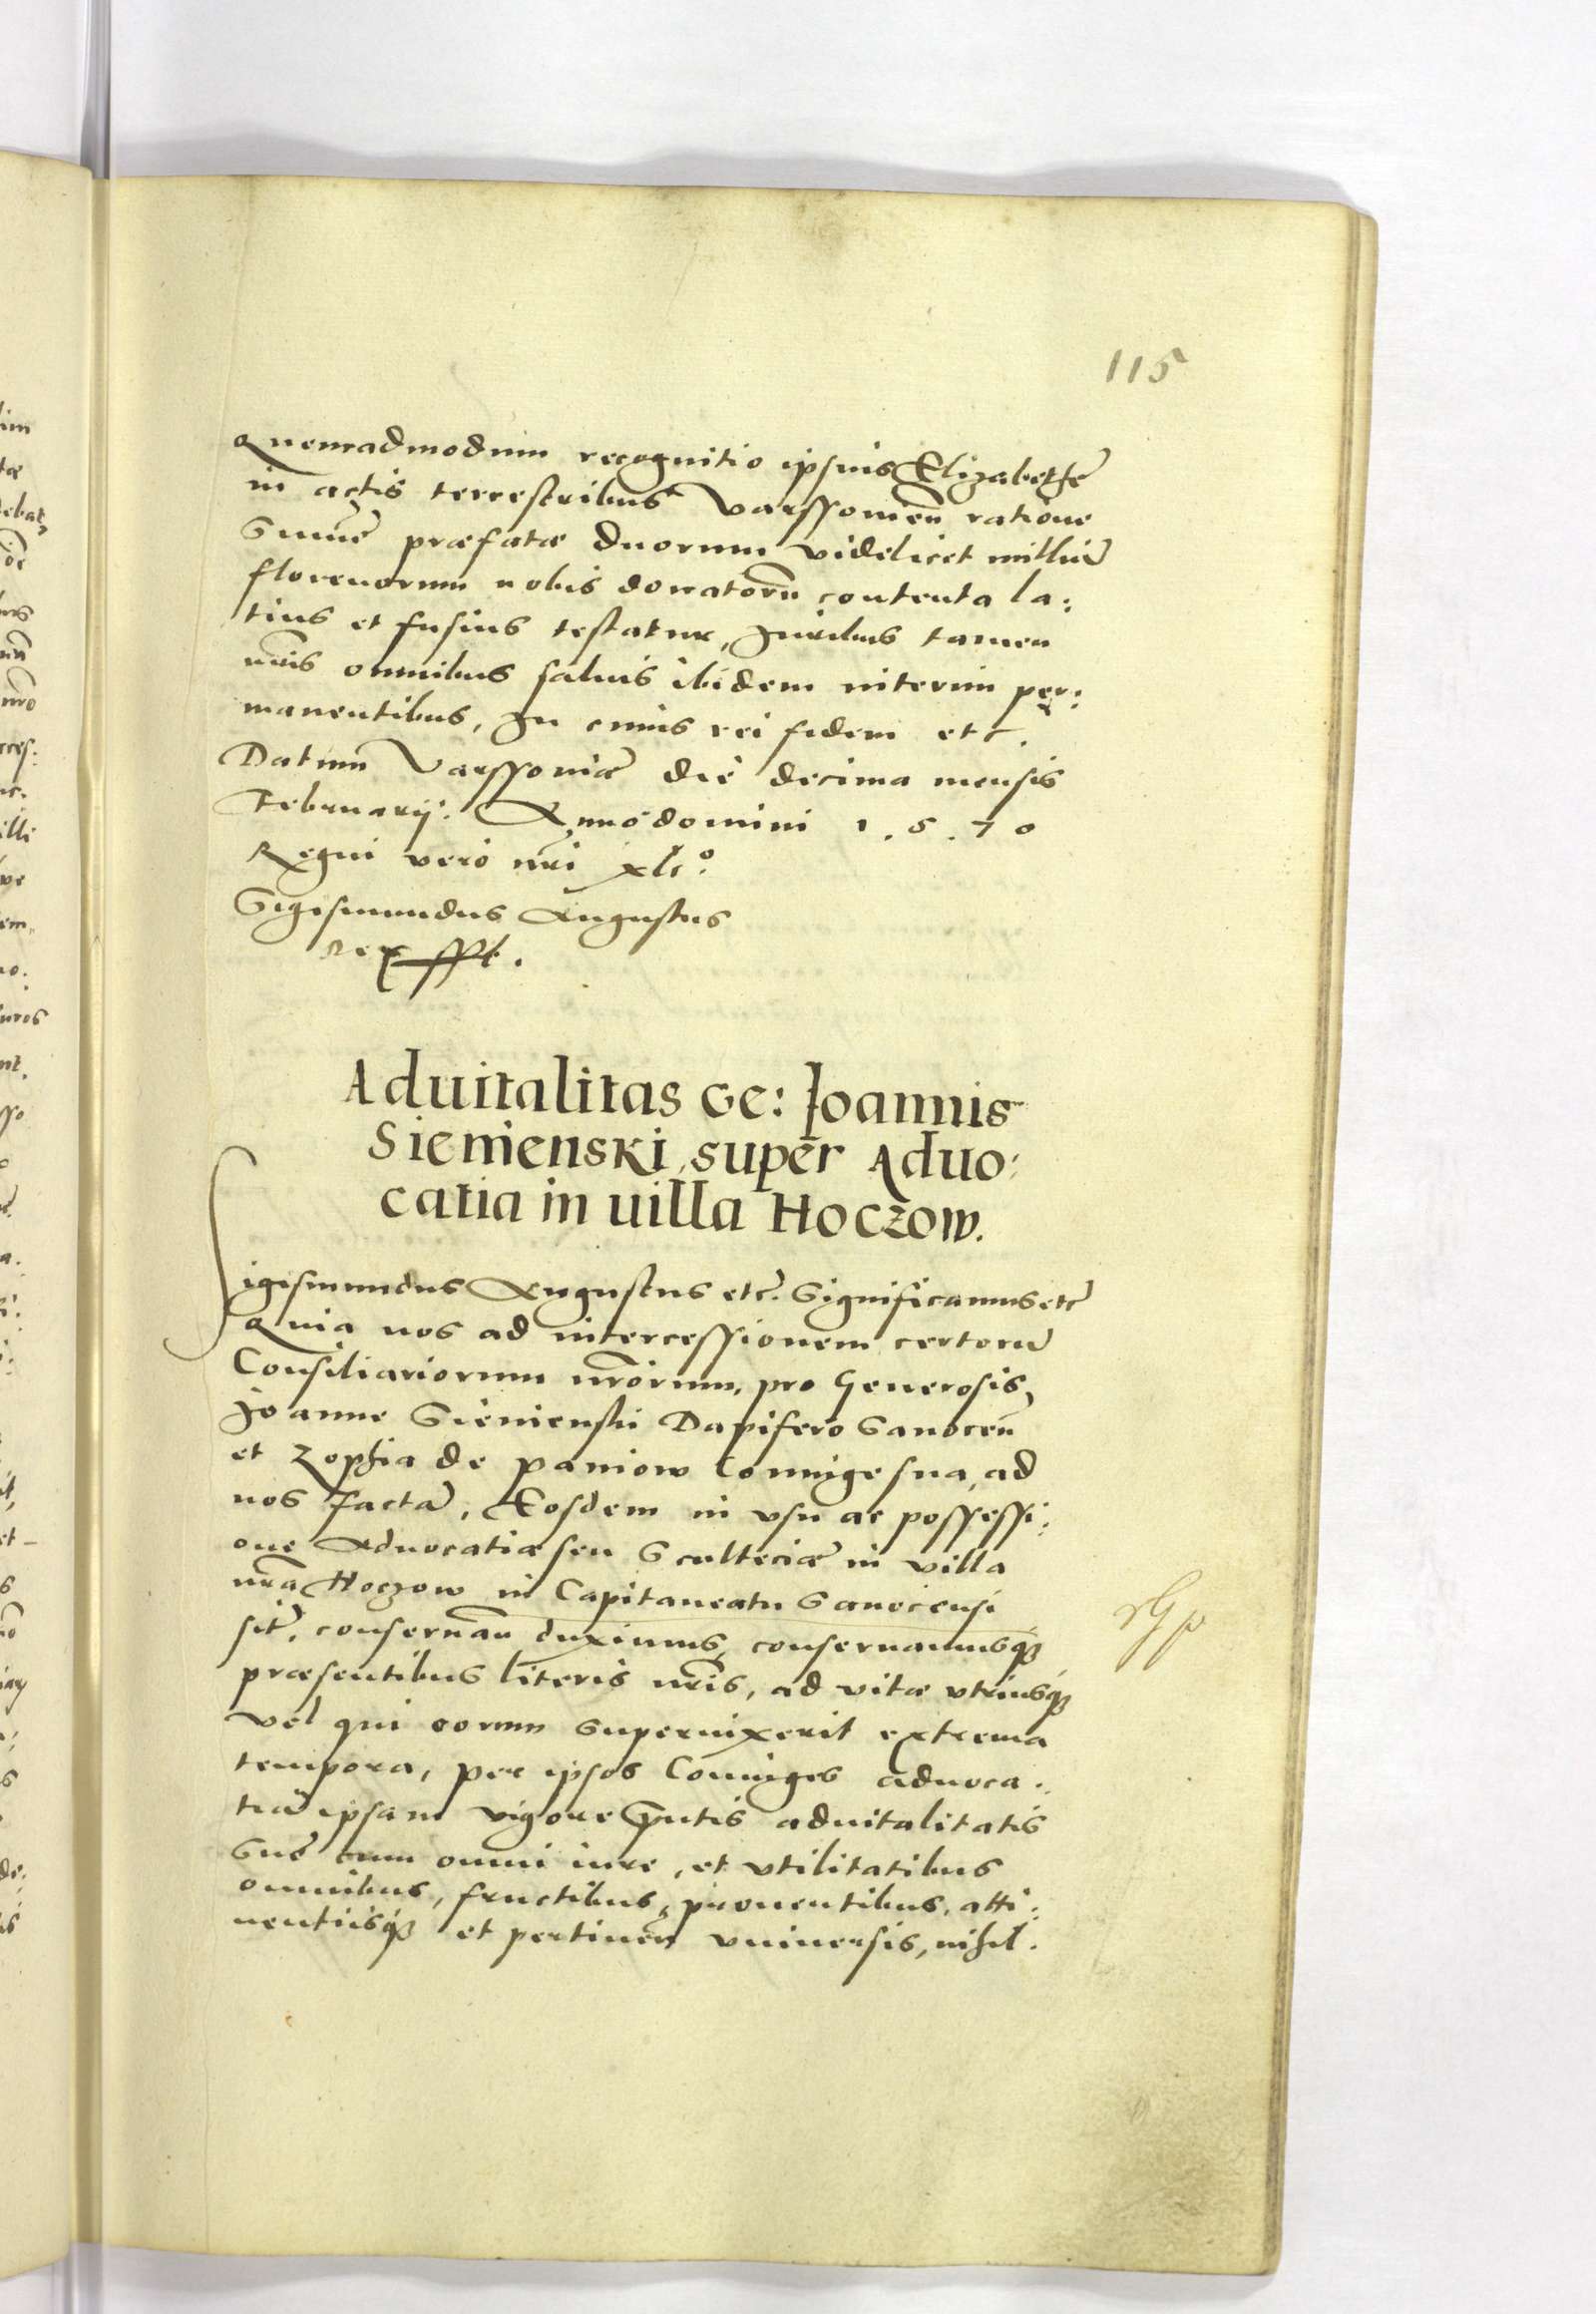 115
Quemadmodum recognitio ipsius Elizabethe
in actis terrestribus Varssovien̄ ratione
Summe præfatæ duorum videlicet milliū
florenorum nobis donatorū contenta la:
tius et fusius testatur, Juribus tamen
nr̄is omnibus saluis ibidem interim per:
manentibus, In cuius rei fidem etc.
Datum Varssoviæ die decima mensis
Februarij. Anno domini 1.5.70
Regni vero nr̄i xl.º
Sigismundus Augustus
Rex sspt.
Aduitalitas Ge: Joannis
Sienienski, super Aduo:
catia in uilla Hoczow.
Sigismundus Augustus etc̄. Significamus etc̄
Quia nos ad intercessionem certorū
Consiliariorum nr̄orum, pro Generosis,
Joanne Sienienski Dapifero Sanocen̄
et Zophia de Paniow Coniuge sua, ad
nos factā, Eosdem in vsu ac possessi:
one Aduocatiæ seu Scultetiæ in villa
nr̄a Hoczow in Capitaneatu Sanocensi
sit̄. conseruan̄ duximus, conseruamusq̄
præsentibus literis nr̄is, ad vitæ vtriusq̄
vel qui eorum superuixerit extrema
tempora, per ipsos Coniuges aduoca:
tiā ipsam vigore pn̄tis aduitalitatis
suę cum omni iure, et vtilitatibus
omnibus, fructibus, prouentibus, atti:
nentiisq̄ et pertinen̄ vniuersis, nihil.